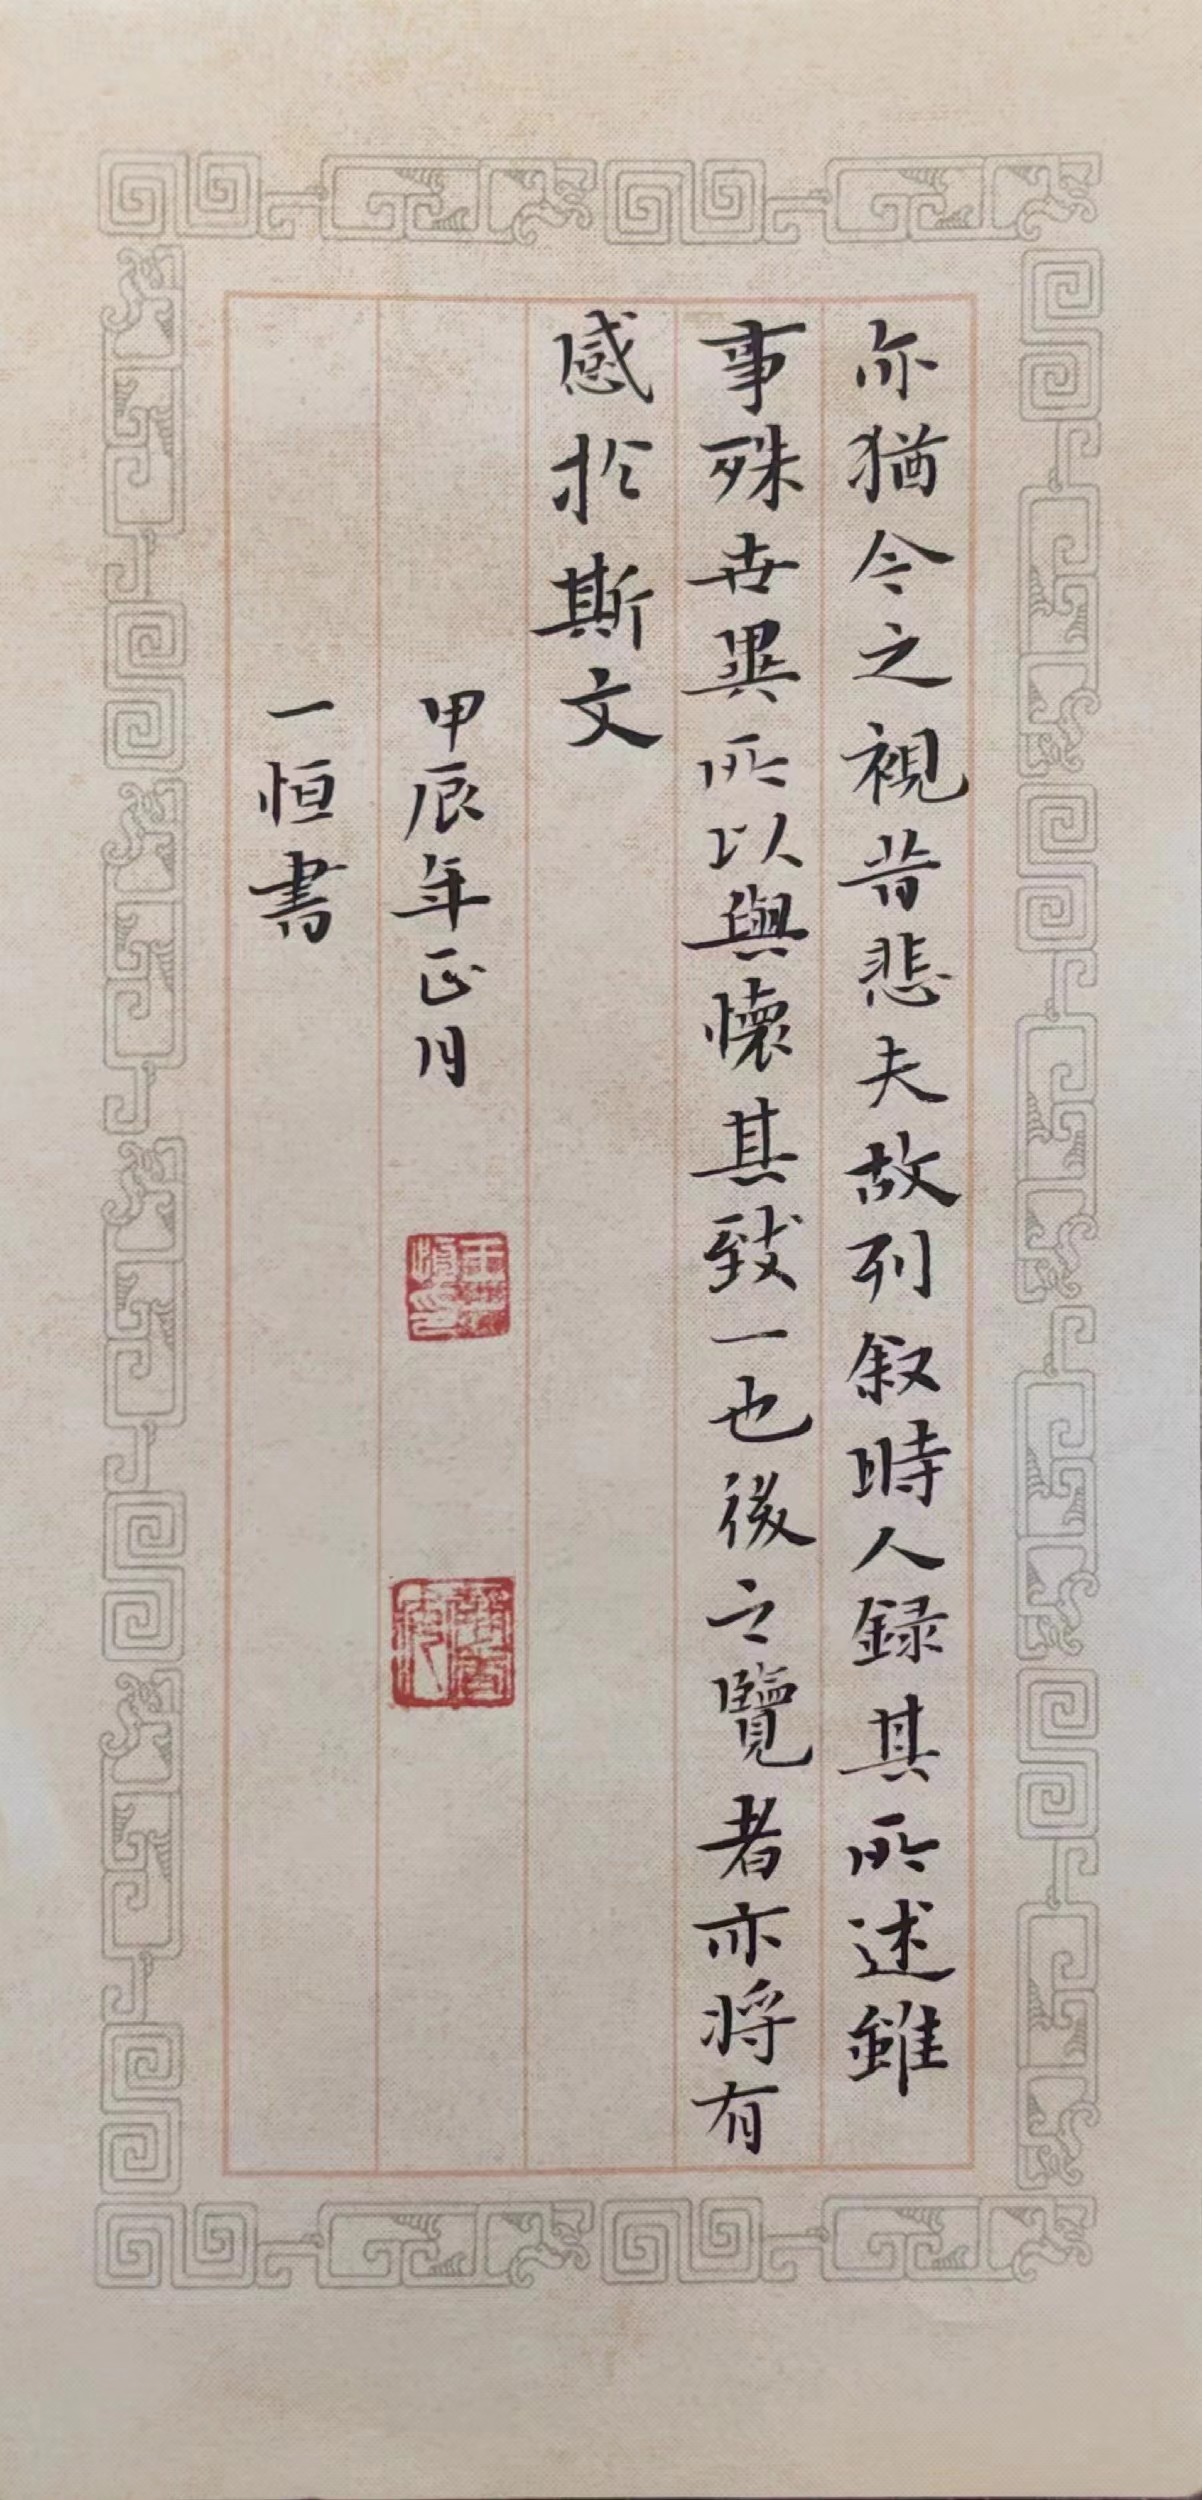 亦猶今之視昔悲夫故列叙時人録其所述雖
事殊世異所以興懷其致一也後之覽者亦將有
感於斯文
甲辰年正月
一恒書